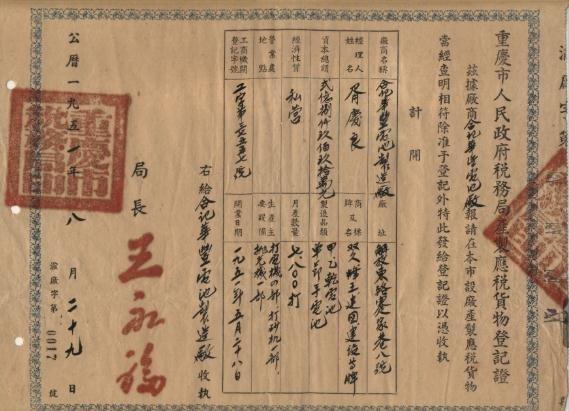 重慶市人民政府税務局產製應税貨物登記證
茲據廠商合記華豐電池廠報請在本市設廠產製應税貨物
當經查明相符除准予登記外特此發給登記證以憑收執
計開
廠商名稱 合記華豐電池製造廠
廠址
經理人姓名 胥慶良
商標及牌名
資本總額 弍億捌仟玖佰玖拾萬元
製造品類 甲乙乾電池 單節手電池
經濟性質 私營
月產數量 七八〇〇打
營業處地點
生產主要設備 打電機一部 打砂机一部
工商機關登記字號
開業日期 一九五一年五月二十八日
右給合記華豐電池製造廠收執
局長 王永福
公曆一九五一年八月二十九日
渝廠字第0017號
重慶市税務局印